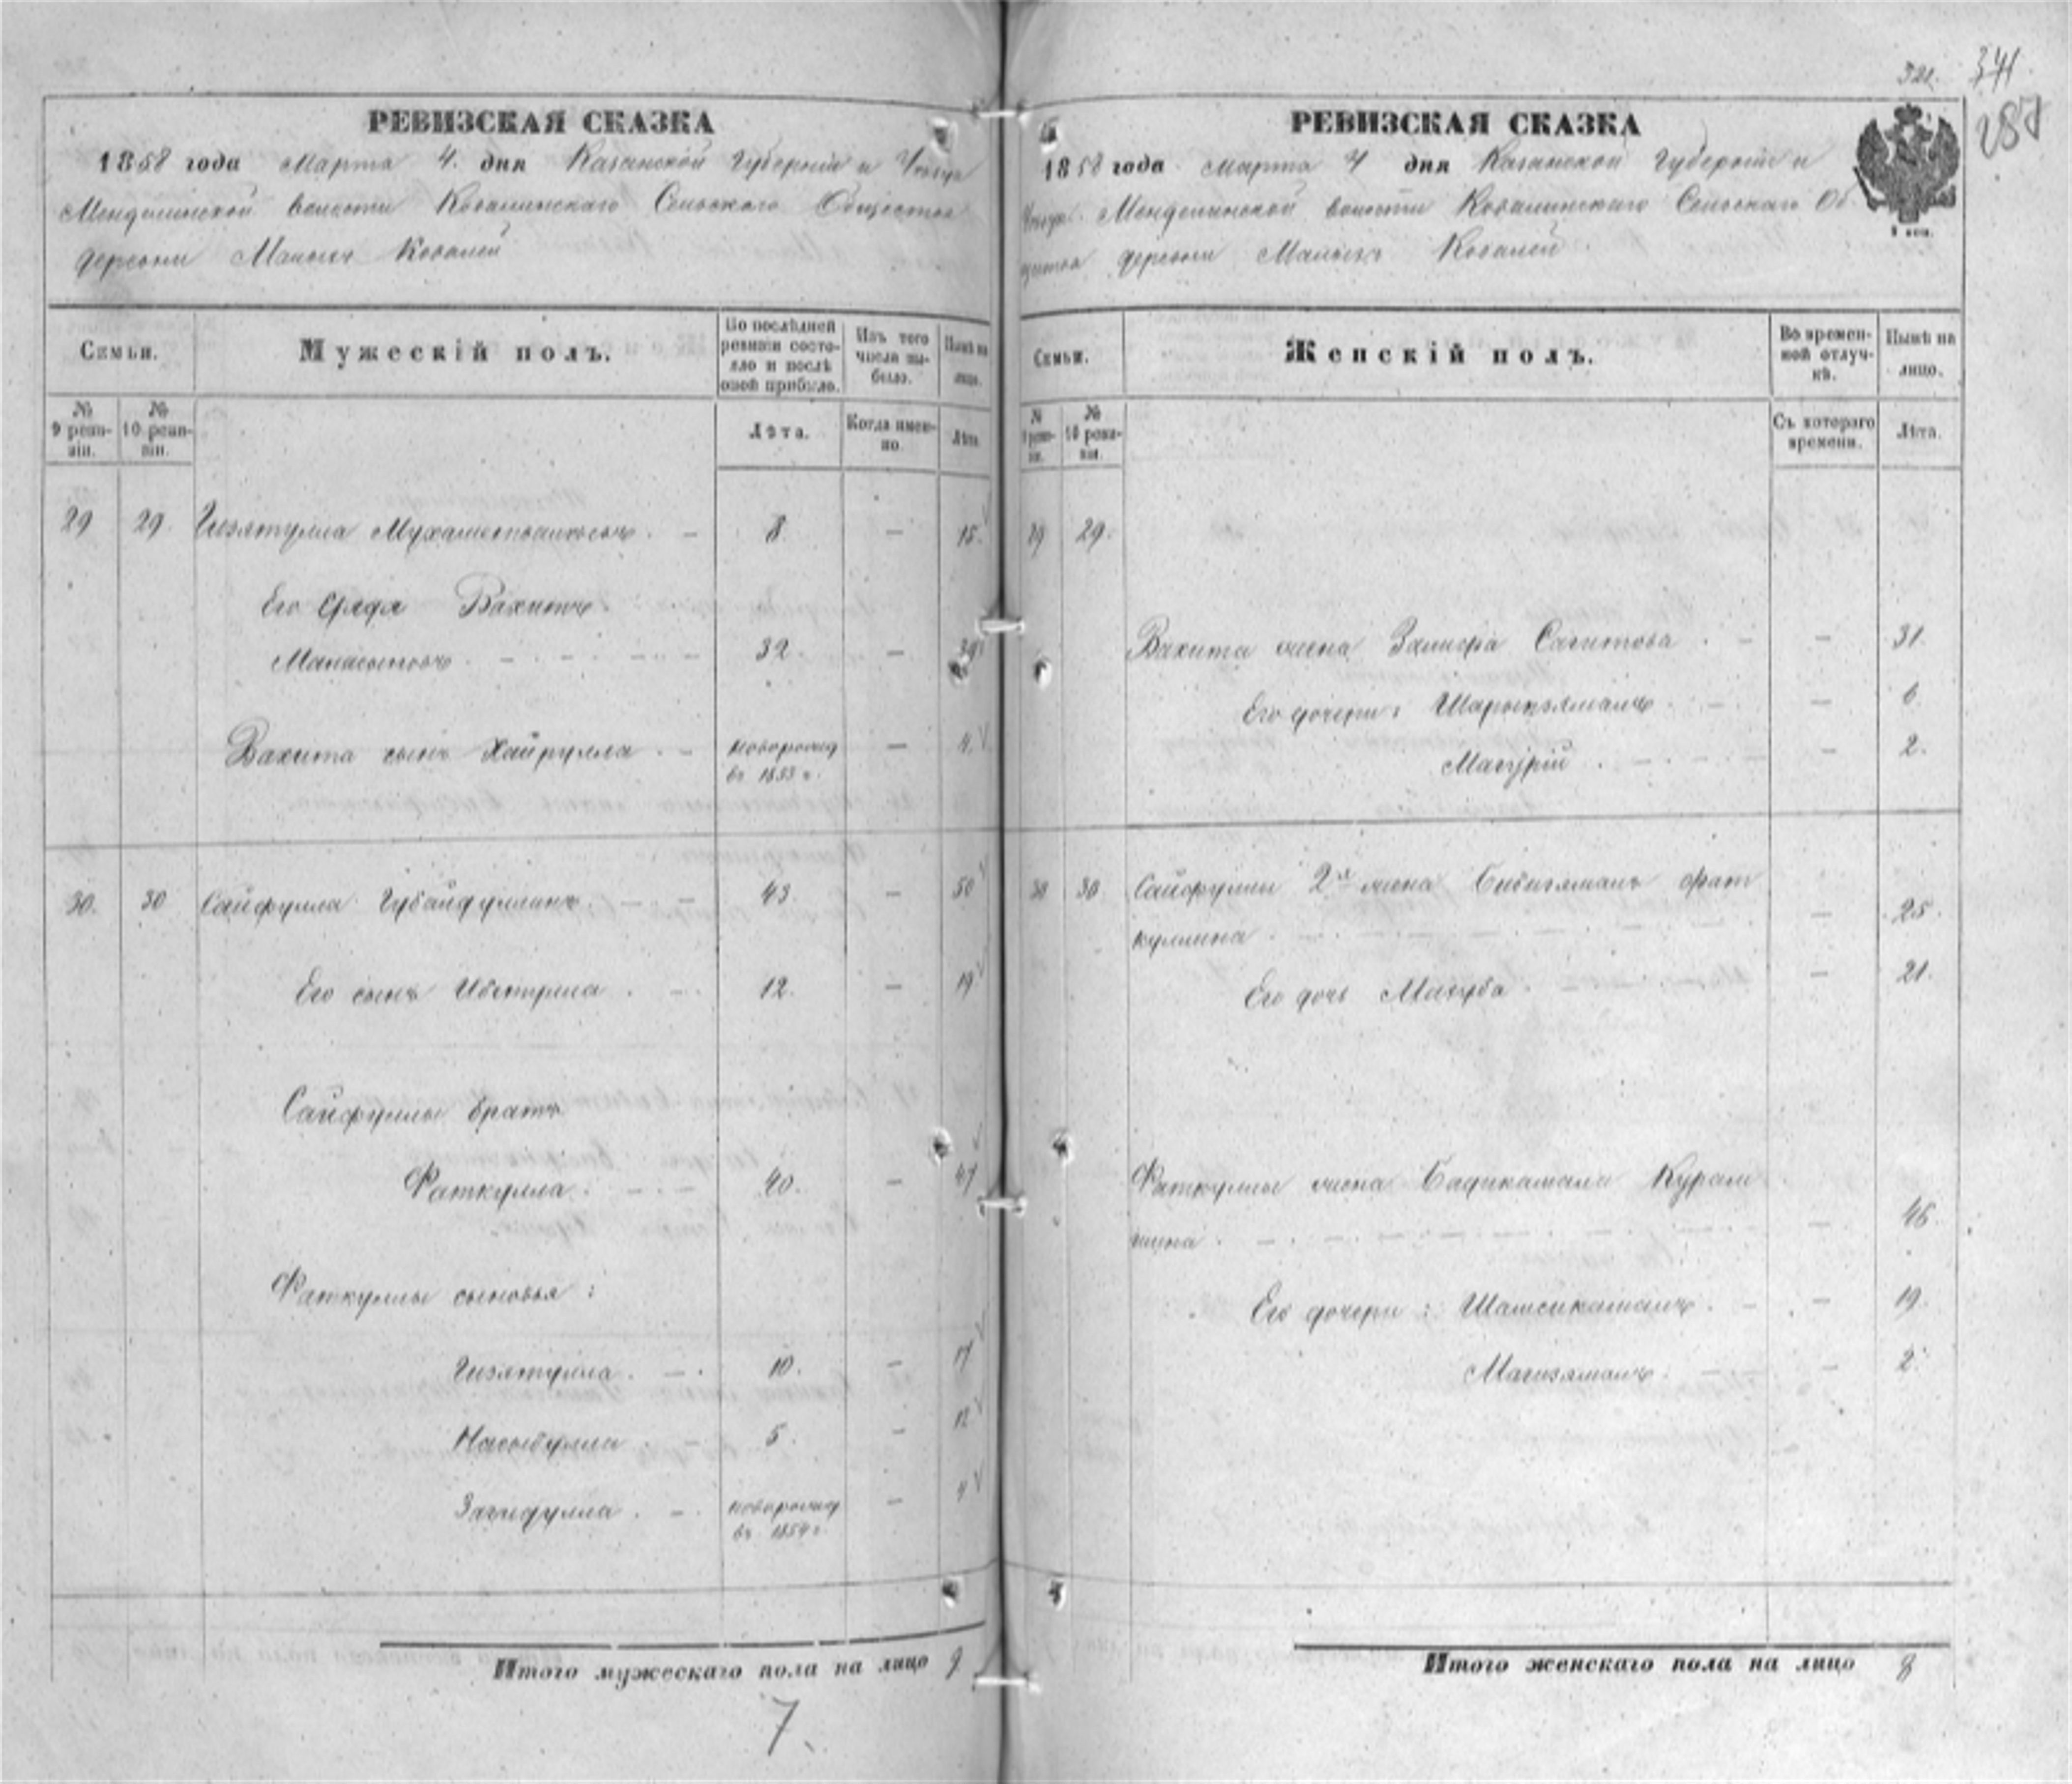 321. 341.
287
РЕВИЗСКАЯ СКАЗКА
1858 года Марта 4. дня Казанской Губернiи и Уезда
Менделинской волости Ковалинскаго Сельского Общества
деревни Малыхъ Ковалей
Семьи.
Мужескій полъ.
По послѣдней ревизіи состояло и послѣ оной прибыло.
Изъ того числа выбыло.
Нынѣ на лицо.
№ 9 ревизіи.
№ 10 ревизіи.
Лѣта.
Когда именно.
Лѣта.
29 29. Гизятулла Мухаметвалиевъ. – 8. – 15.
Его дядя Вахитъ
32. – 39
Вахита сынъ Хайрулла. – новорожд – 4.
въ 1853 г.
30. 30 Сайфулла Губайдуллинъ. – 43. – 50
Его сынъ Ибетулла. – 12. – 19
Сайфуллы братъ
Фаткулла. – 40. – 47
Фаткуллы сыновья:
Гизятулла. – 10. – 17
Насыбулла. – 5. – 12
Загидулла. – новорожд – 4
въ 1854 г.
Итого мужескаго пола на лицо 9
7.
РЕВИЗСКАЯ СКАЗКА
1858 года марта 4 дня Казанской Губерніи и
Уезда Менделинской волости Ковалинскаго Сельскаго Об
щества деревни Малыхъ Ковалей.
8 коп.
Семьи.
Женскій полъ.
Во временной отлучкѣ.
Нынѣ на лицо.
№ 9 ревизіи.
№ 10 ревизіи.
Съ котораго времени.
Лѣта.
29 29.
Вахита жена Залифа Сагитова. – – 31.
Его дочери: Шарыпзямалъ. – – 6.
Магурій. – – 2.
30 30. Сайфуллы 2я жена Бибизямалъ Фат
куллина. – – 25.
Его дочь Магуба. – – 21.
Фаткуллы жена Бадикамала Курам
шина. – – 46.
Его дочери: Шамсикамалъ. – – 19.
Магизямалъ. – – 2.
Итого женскаго пола на лицо 8